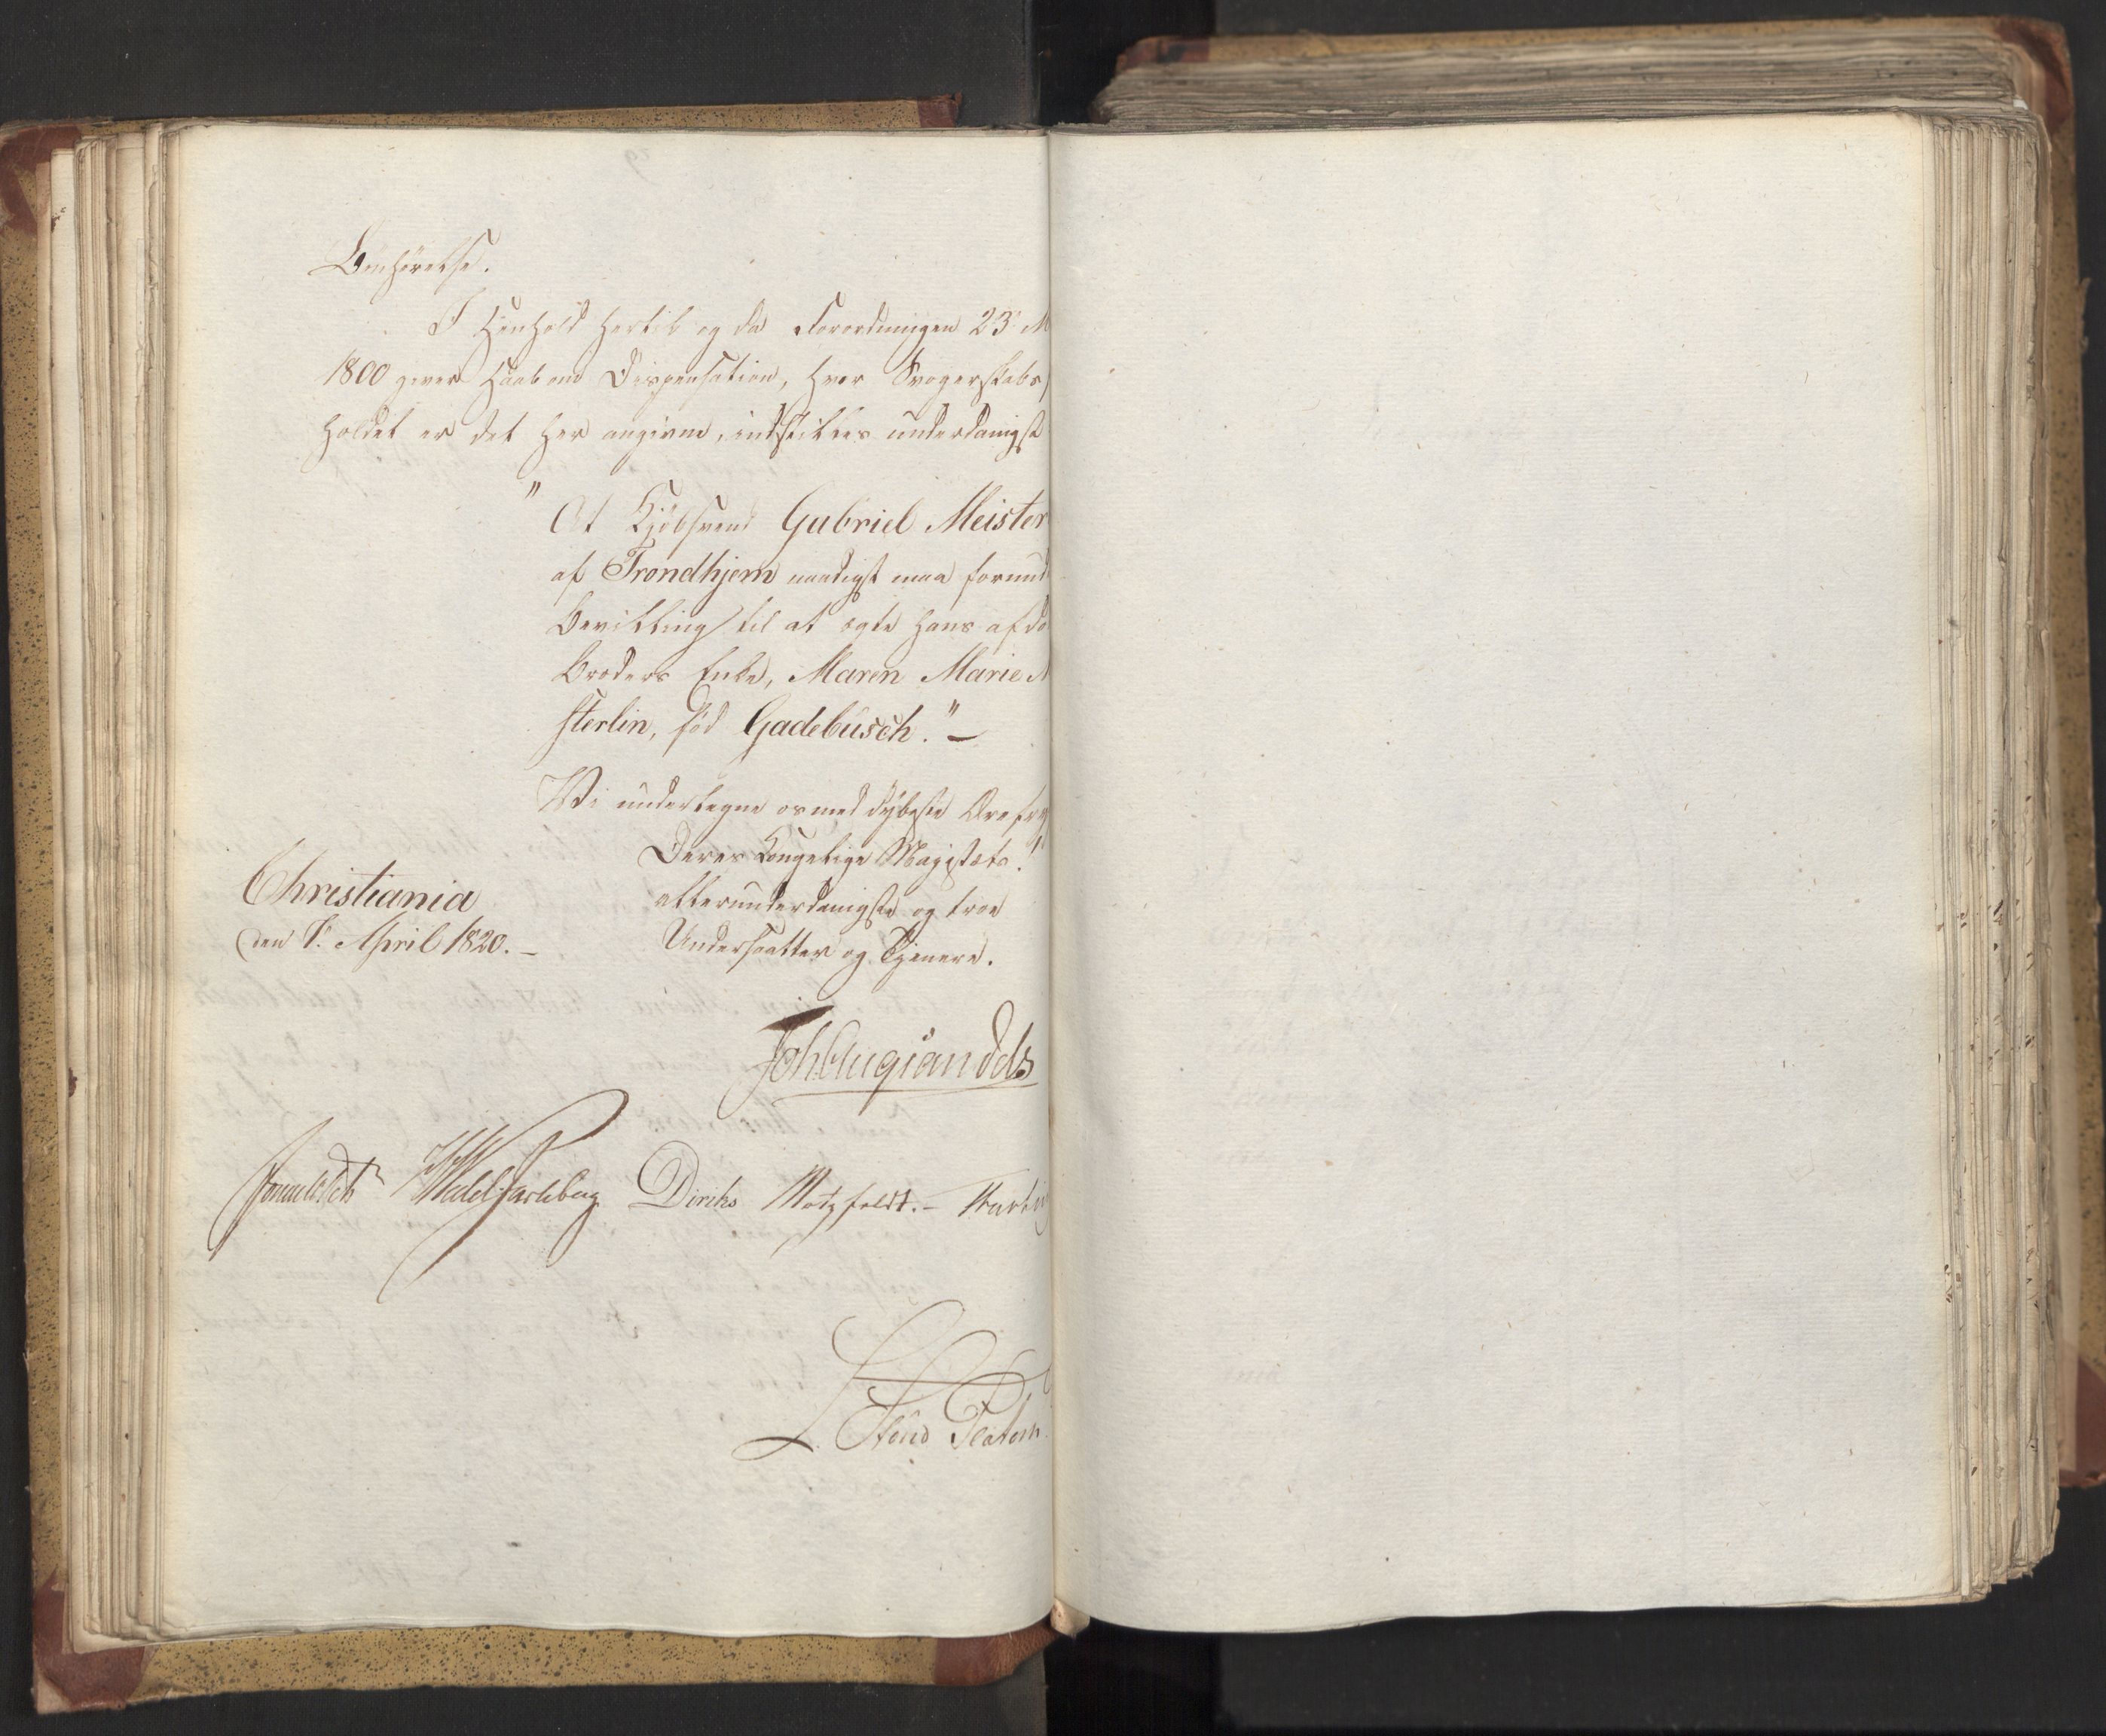 Bønhørelse.
I Henhold hertil og da Forordningen 23. M
1800 giver Haab om Dispensation, hvor Svogerskabs
holdet er det her angivne, indstilles underdanigst
"At Kjøbsvend Gabriel Meister
af Trondhjem naadigst maa forund
Bevilling til at ægte hans afdø
Broders Enke, Maren Marie M
sterlin, fød Gadebusch." —
Vi undertegne os med dybeste Ærefry
Deres Kongelige Majestæts
allerunderdanigste og troe
Undersaatter og Tjenere.
Christiania
den 8. April 1820. —
Joh. Aug. Sandels
Sommerfeldt Wedel Jarlsberg Diriks Motzfeldt. — Krebs
Stud Platou